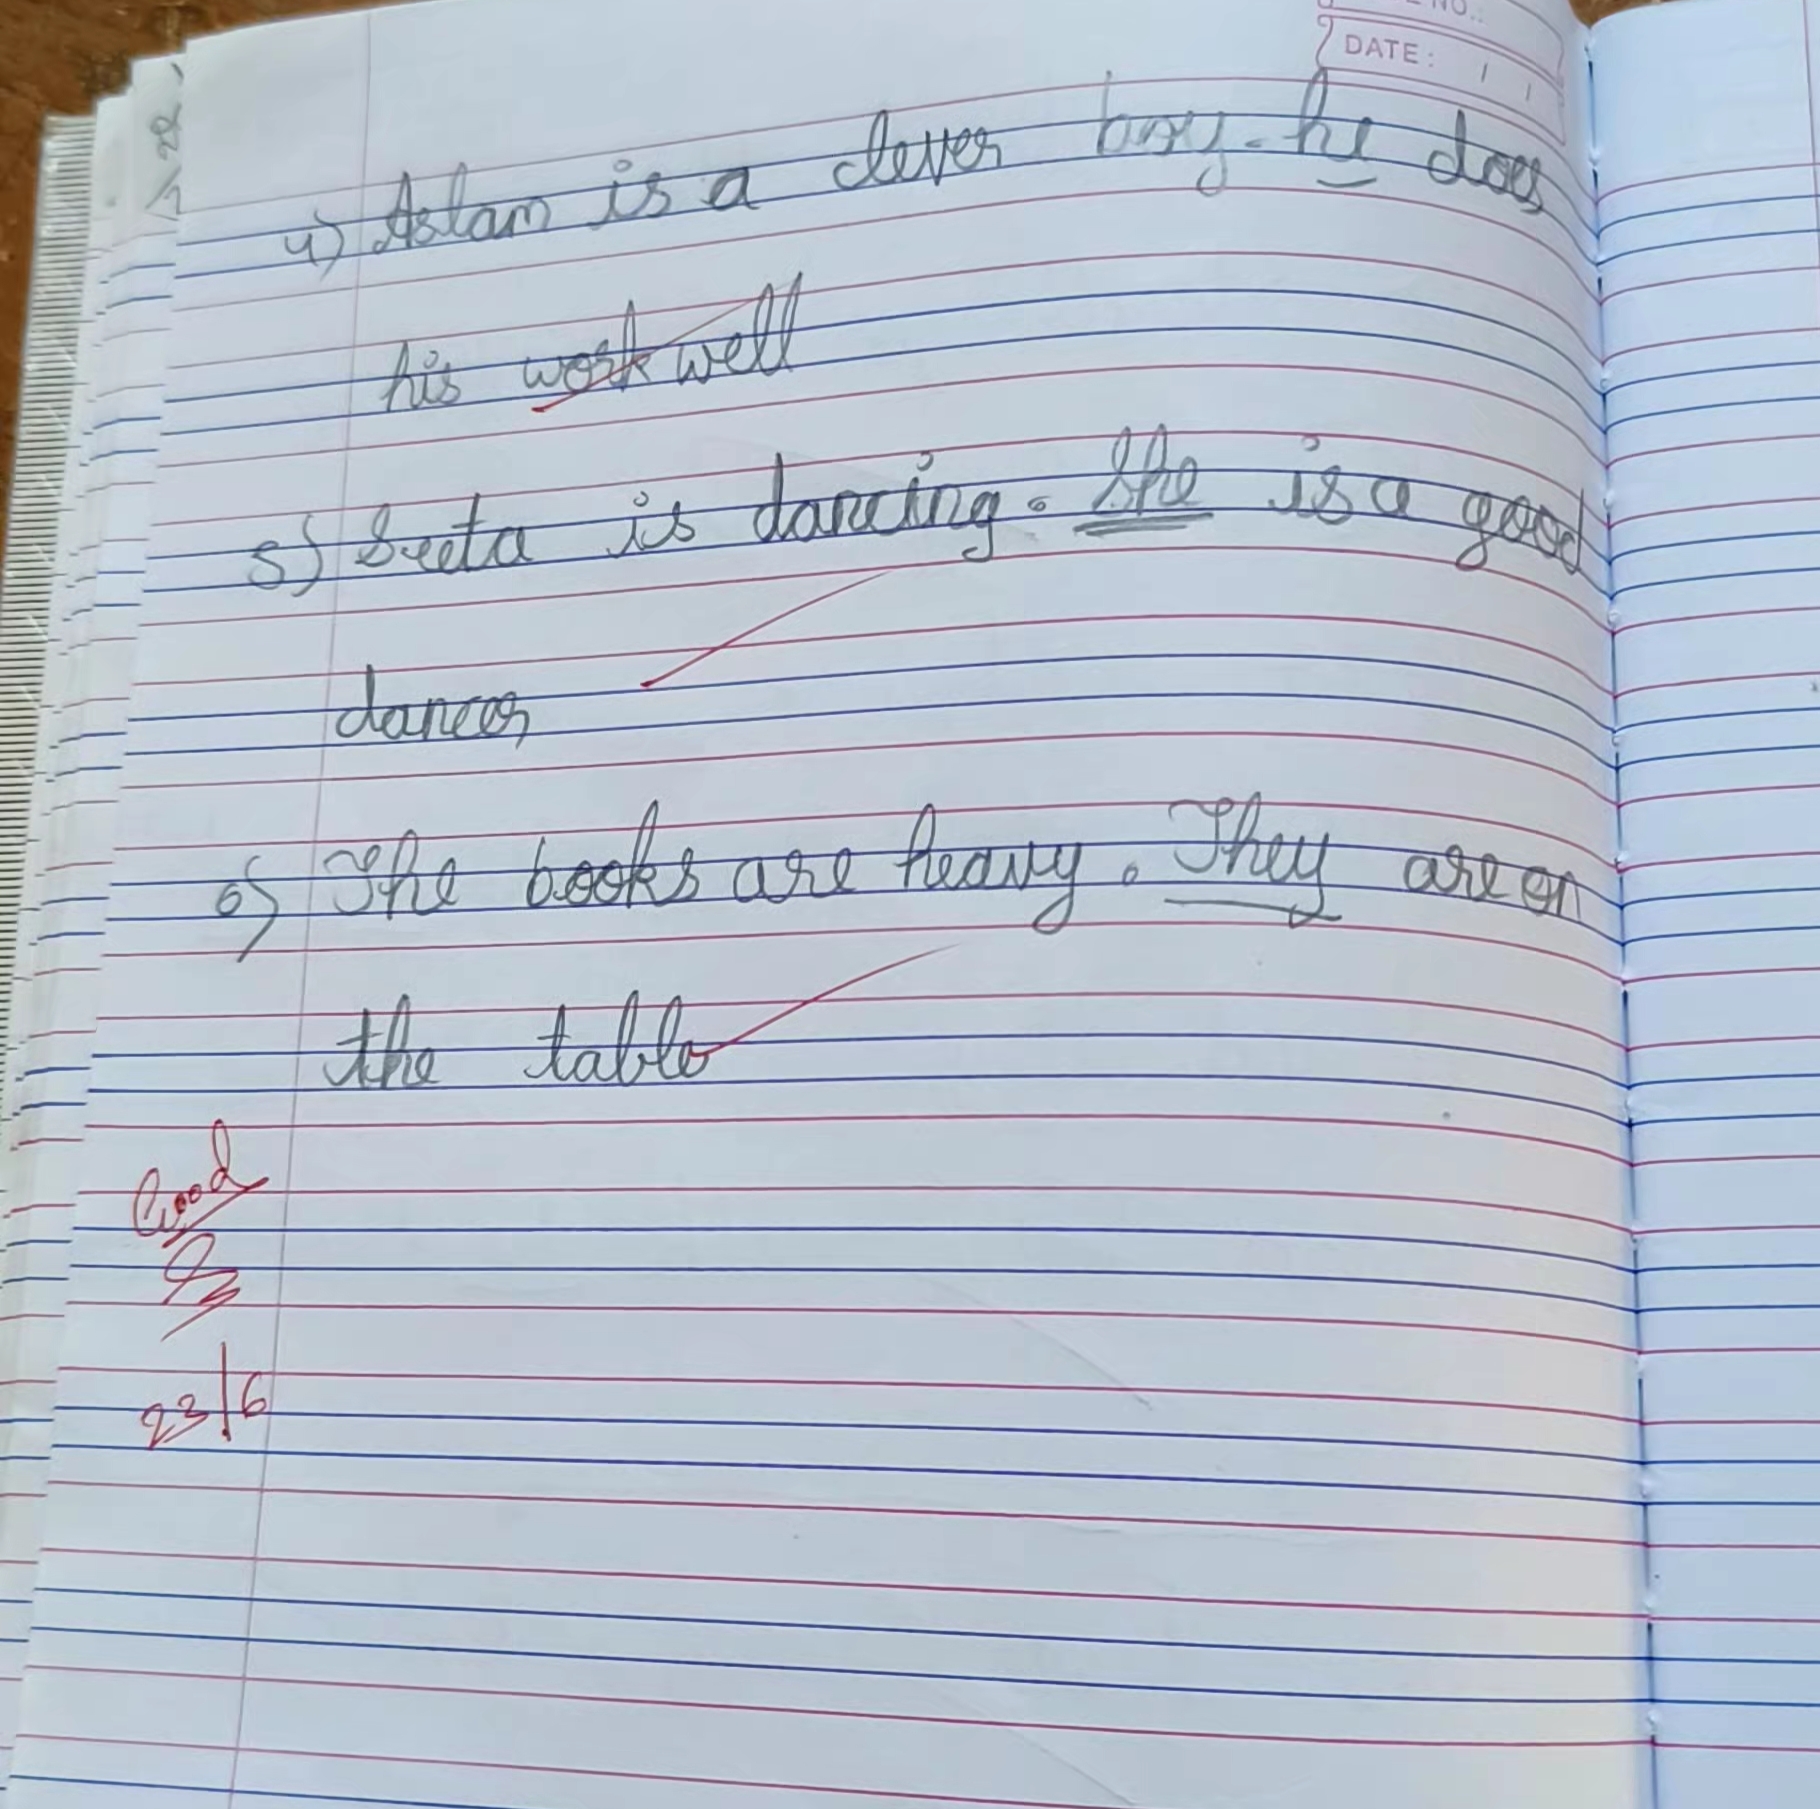 NO.:
DATE: / /
4) Aslam is a clever boy. he does
his work well
5) Seeta is dancing. She is a good
dancer
6) The books are heavy. They are on
the table
Good
23/6